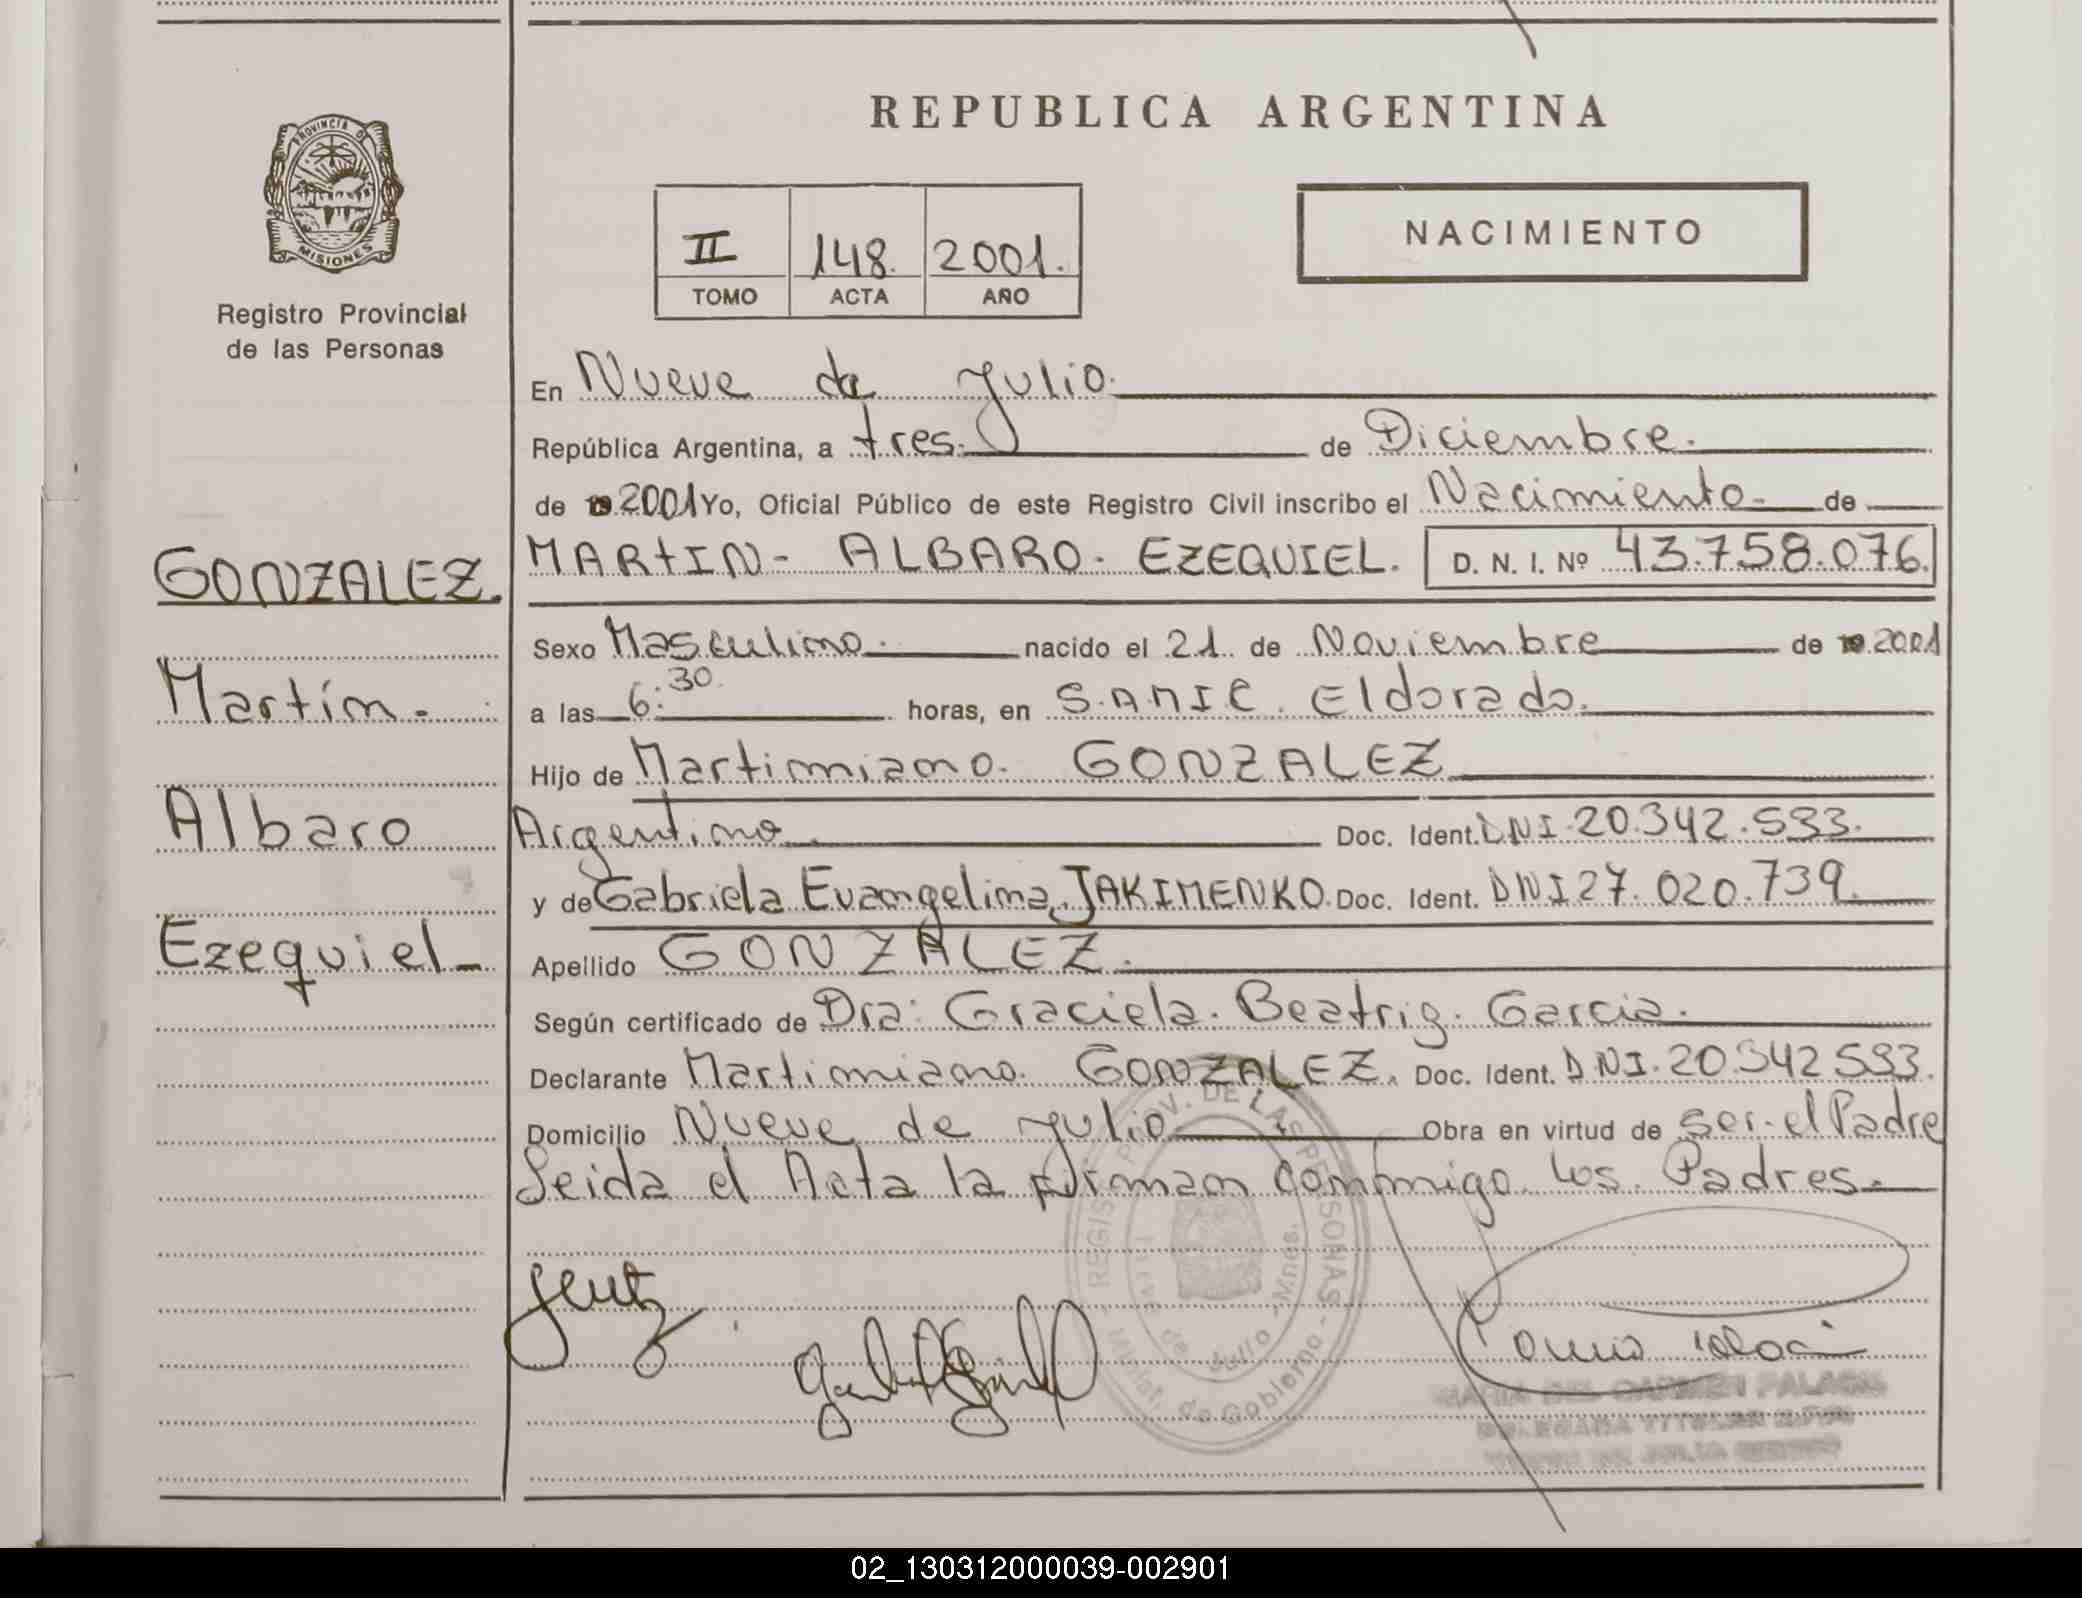 REPUBLICA ARGENTINA
PROVINCIA D
MISIONES
Registro Provincial
de las Personas
II 148. 2001.
TOMO ACTA AÑO
NACIMIENTO
En Nueve de Julio.
República Argentina, a tres. de Diciembre.
de 19 2001 Yo, Oficial Público de este Registro Civil inscribo el Nacimiento de
GONZALEZ.
MARTIN - ALBARO - EZEQUIEL. D. N. I. Nº 43.758.076.
Sexo Masculino. nacido el 21. de Noviembre de 19 2001
Martín.
a las 6:30. horas, en S.A.M.I.C. Eldorado.
Hijo de Martimiano. GONZALEZ
Albaro
Argentino. Doc. Ident. DNI.20.342.533.
y de Gabriela Evangelina. JAKIMENKO. Doc. Ident. DNI 27.020.739.
Ezequiel
Apellido GONZALEZ.
Según certificado de Dra: Graciela. Beatriz. Garcia.
Declarante Martimiano. GONZALEZ. Doc. Ident. DNI.20.342533.
Domicilio Nueve de Julio. Obra en virtud de ser. el Padre
Leida el Acta la firman conmigo los Padres.
REGIS PROV. DE LAS PERSONAS
Nueve de Julio - Mnes.
Minist. de Gobierno
MARIA DEL CARMEN PALACIO
02_130312000039-002901